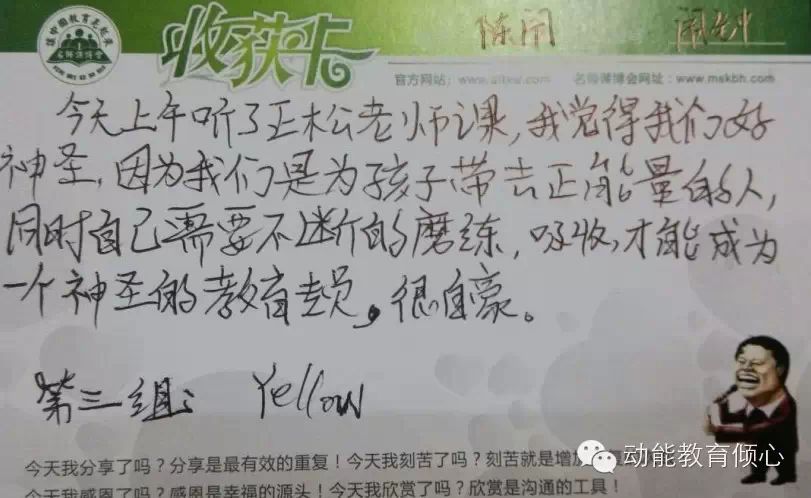 收获卡
陈闹
官方网站：www. 名师博会网址：www.mskbh.com
今天上午听了正松老师课，我觉得我们好
神圣，因为我们是为孩子带去正能量的人，
同时自己需要不断的磨练，吸收，才能成为
一个神圣的教育专员，很自豪。
第三组： Yellow
今天我分享了吗？分享是最有效的重复！今天我刻苦了吗？刻苦就是增加
今天我感恩了吗？感恩是幸福的源头！今天我欣赏了吗？欣赏是沟通的工具！
动能教育倾心